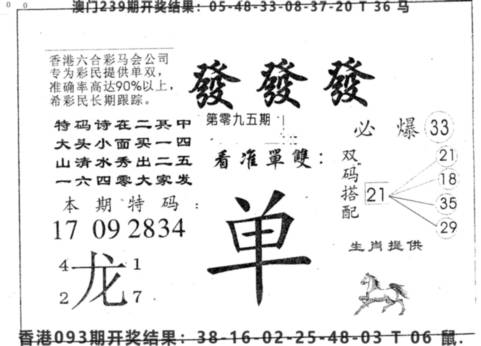 澳门239期开奖结果：05-48-33-08-37-20 T 36 马
香港六合彩马会公司
专为彩民提供单双，
准确率高达90%以上，
希彩民长期跟踪。
發 發 發
第零九五期
特码诗在二其中
大头小面买一四
山清水秀出二五
一六四零大家发
看准單雙：
单
必爆 33
双码搭配
21
21
18
35
29
本期特码：
17 09 28 34
4 1
龙
2 7
生肖提供
香港093期开奖结果：38-16-02-25-48-03 T 06 鼠.